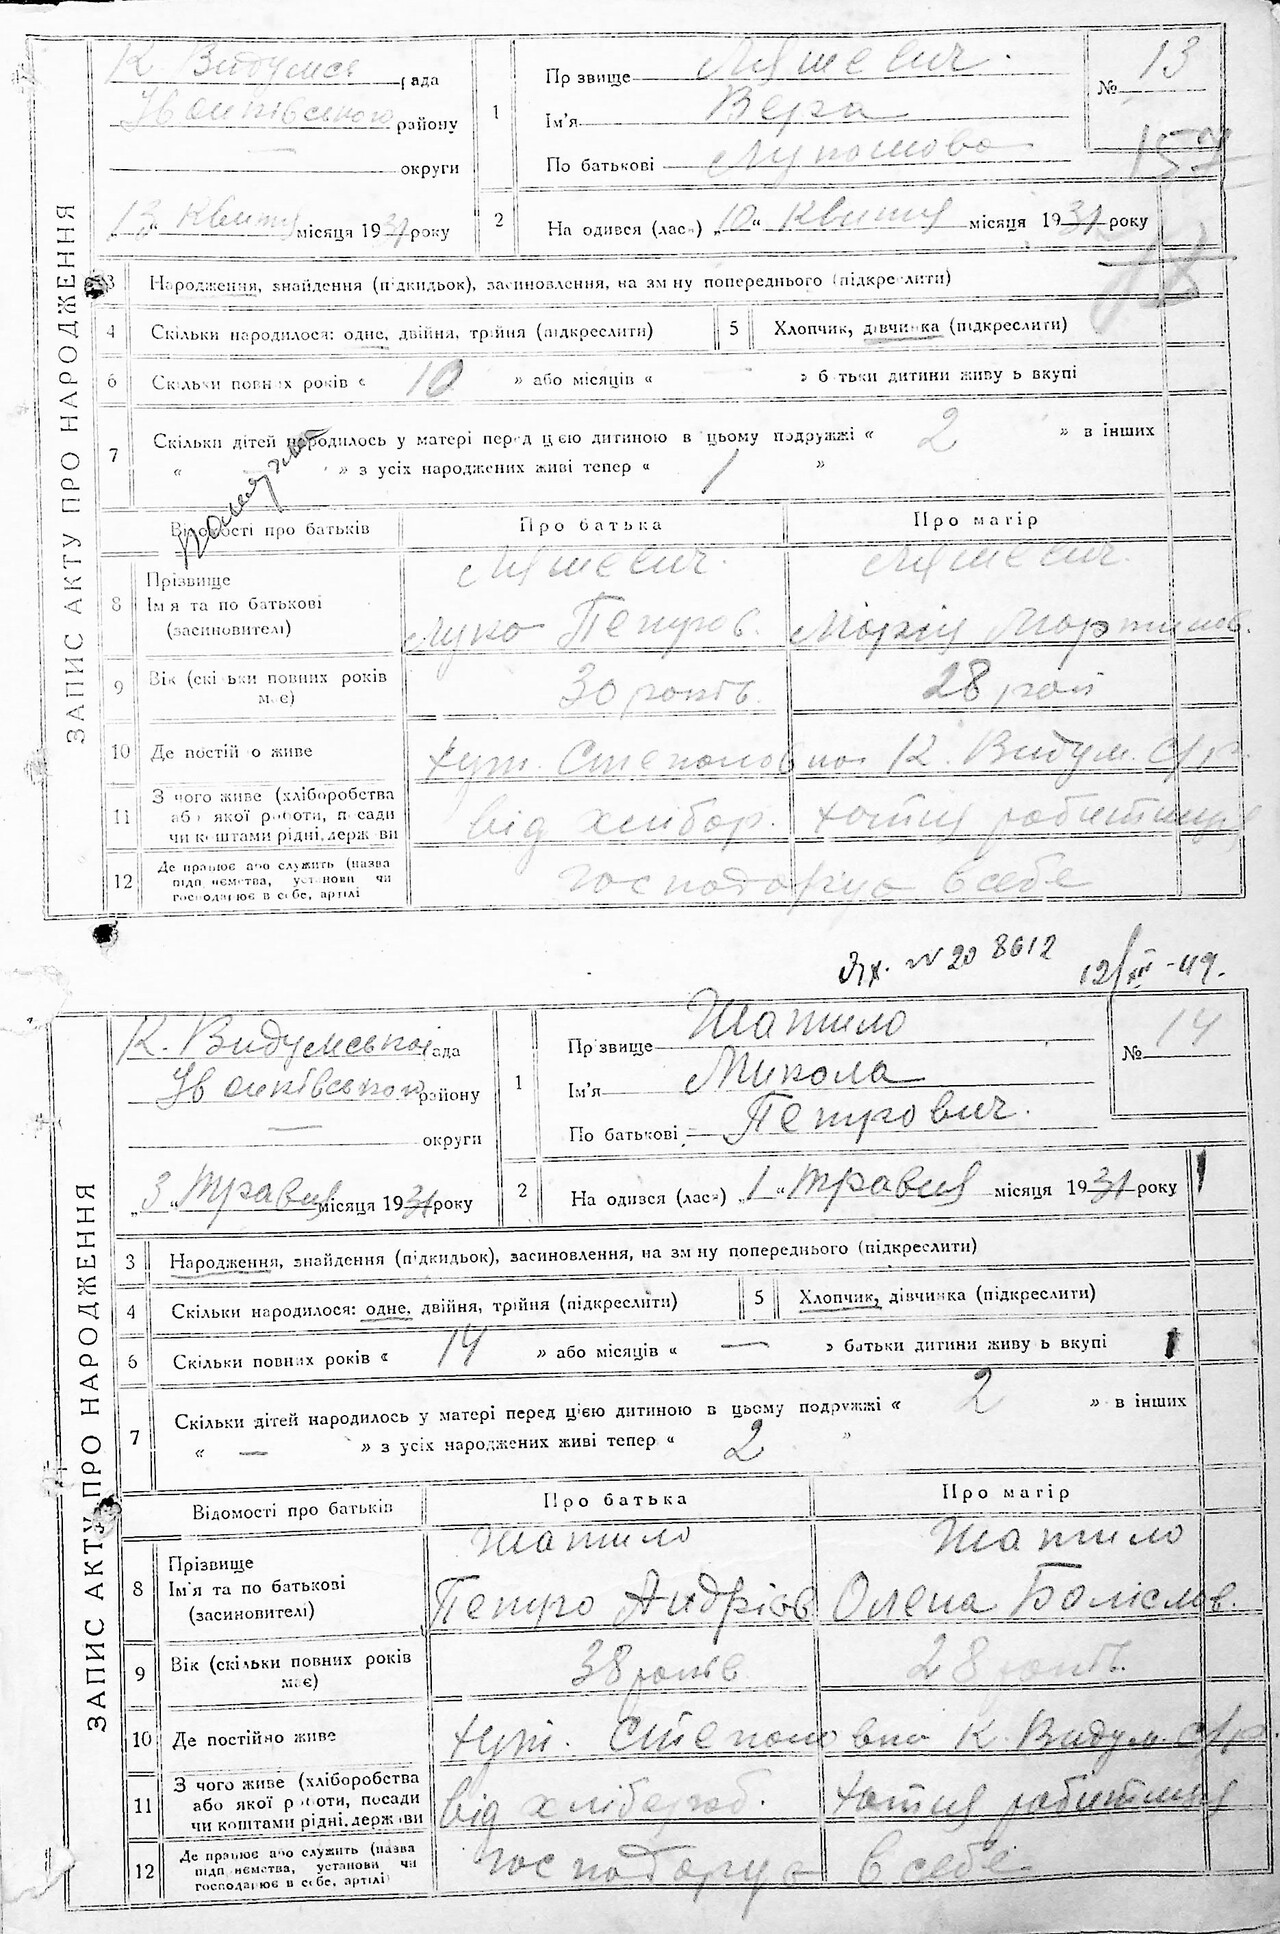 ЗАПИС АКТУ ПРО НАРОДЖЕННЯ
К. Видумсь рада
Іванківського району
— округи
„13“ Квітня місяця 1931 року
1
Прзвище Ляшевич.
Ім'я Вера
По батькові Лукашова
№ 13
2
На одився (лась) „10“ Квітня місяця 1931 року
3 Народження, знайдення (підкидьок), засиновлення, на зм ну попереднього (підкреслити)
4 Скільки народилося: одне, двійня, трійня (підкреслити)
5 Хлопчик, дівчинка (підкреслити)
6 Скільки повних років « 10 » або місяців « — » батьки дитини живу ь вкупі
7 Скільки дітей народилось у матері перед цією дитиною в цьому подружжі « 2 » в інших
« » з усіх народжених живі тепер « 1 »
Відомості про батьків Про батька Про матір
8 Прізвище Ляшевич. Ляшевич.
Ім'я та по батькові Луко Петров. Марія Мартинов.
(засиновителі)
9 Вік (скільки повних років має) 30 років. 28 рок
10 Де постійно живе хут. Степановка К. Видум. с/р.
11 З чого живе (хліборобства або якої роботи, посади чи коштами рідні, держави від хлибор. хатня робитниця
12 Де працює або служить (назва підп иємства, установи чи господарює в себе, артілі господарує в себе
Вх. № 20 8612 12/III-49.
ЗАПИС АКТУ ПРО НАРОДЖЕННЯ
К. Видумської рада
Іванківського району
— округи
„3“ Травня місяця 1931 року
1
Прзвище Шатило
Ім'я Микола
По батькові Петрович.
№ 14
2
На одився (лась) „1“ Травня місяця 1931 року
3 Народження, знайдення (підкидьок), засиновлення, на зм ну попереднього (підкреслити)
4 Скільки народилося: одне, двійня, трійня (підкреслити)
5 Хлопчик, дівчинка (підкреслити)
6 Скільки повних років « 14 » або місяців « — » батьки дитини живу ь вкупі
7 Скільки дітей народилось у матері перед цією дитиною в цьому подружжі « 2 » в інших
« — » з усіх народжених живі тепер « 2 »
Відомості про батьків Про батька Про матір
8 Прізвище Шатило Шатило
Ім'я та по батькові Петро Андріов Олена Боліслов.
(засиновителі)
9 Вік (скільки повних років має) 38 років 28 років.
10 Де постійно живе хут. Степановка К. Видум. с/р.
11 З чого живе (хліборобства або якої роботи, посади чи коштами рідні, держави від хлібороб. хатня робитниця
12 Де працює або служить (назва підп иємства, установи чи господарює в себе, артілі) господарує в себе